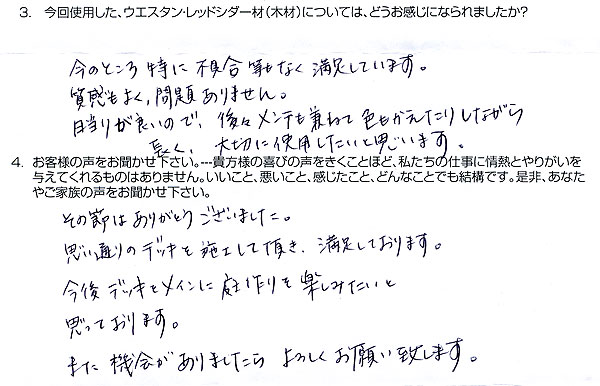 3. 今回使用した、ウエスタン・レッドシダー材(木材)については、どうお感じになられましたか?
今のところ特に不具合等もなく満足しています。
質感もよく、問題ありません。
日当りが良いので、後々メンテも兼ねて色もかえたりしながら
長く、大切に使用したいと思います。
4. お客様の声をお聞かせ下さい。---貴方様の喜びの声をきくことほど、私たちの仕事に情熱とやりがいを
与えてくれるものはありません。いいこと、悪いこと、感じたこと、どんなことでも結構です。是非、あなた
やご家族の声をお聞かせ下さい。
その節はありがとうございました。
思い通りのデッキを施工して頂き、満足しております。
今後デッキをメインに庭作りを楽しみたいと
思っております。
また機会がありましたらよろしくお願い致します。